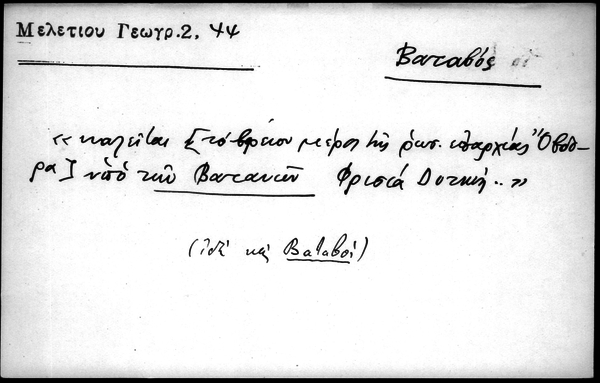 Μελετίου Γεωγρ. 2, 44
Βαταβός οἱ
«καλεῖται [τό βόρειον μέρος τῆς ρωσ. ἐπαρχίας
ρα] ὑπό τῶν Βατανῶν Φρισιά Δυτική..»
(ἰδέ καί Βαταβοί)